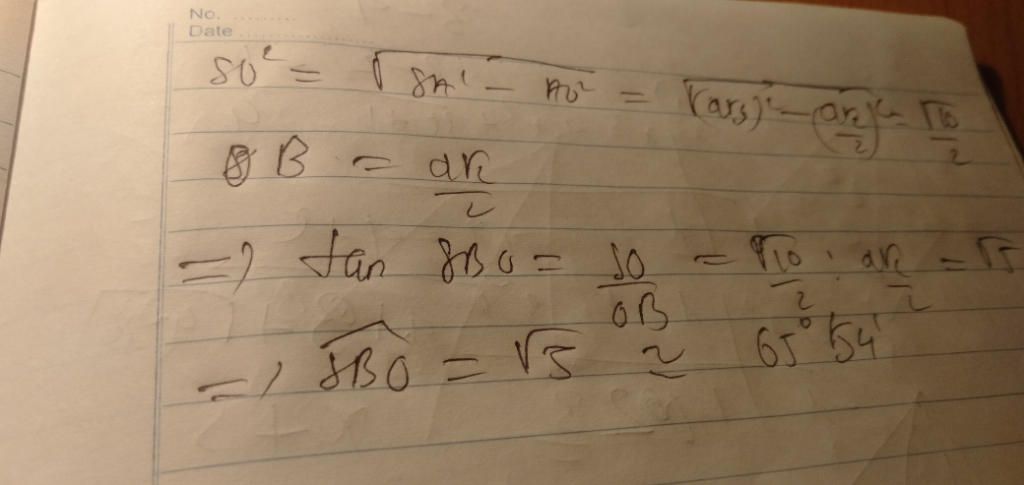 No. ............
Date ........................
SO² = √SA² - AO² = √(a√3)² - (a√2/2)² = √10/2
OB = a√2/2
=> tan SBO = SO/OB = √10/2 : a√2/2 = √5
=> SBO = √5 ≈ 65°54'